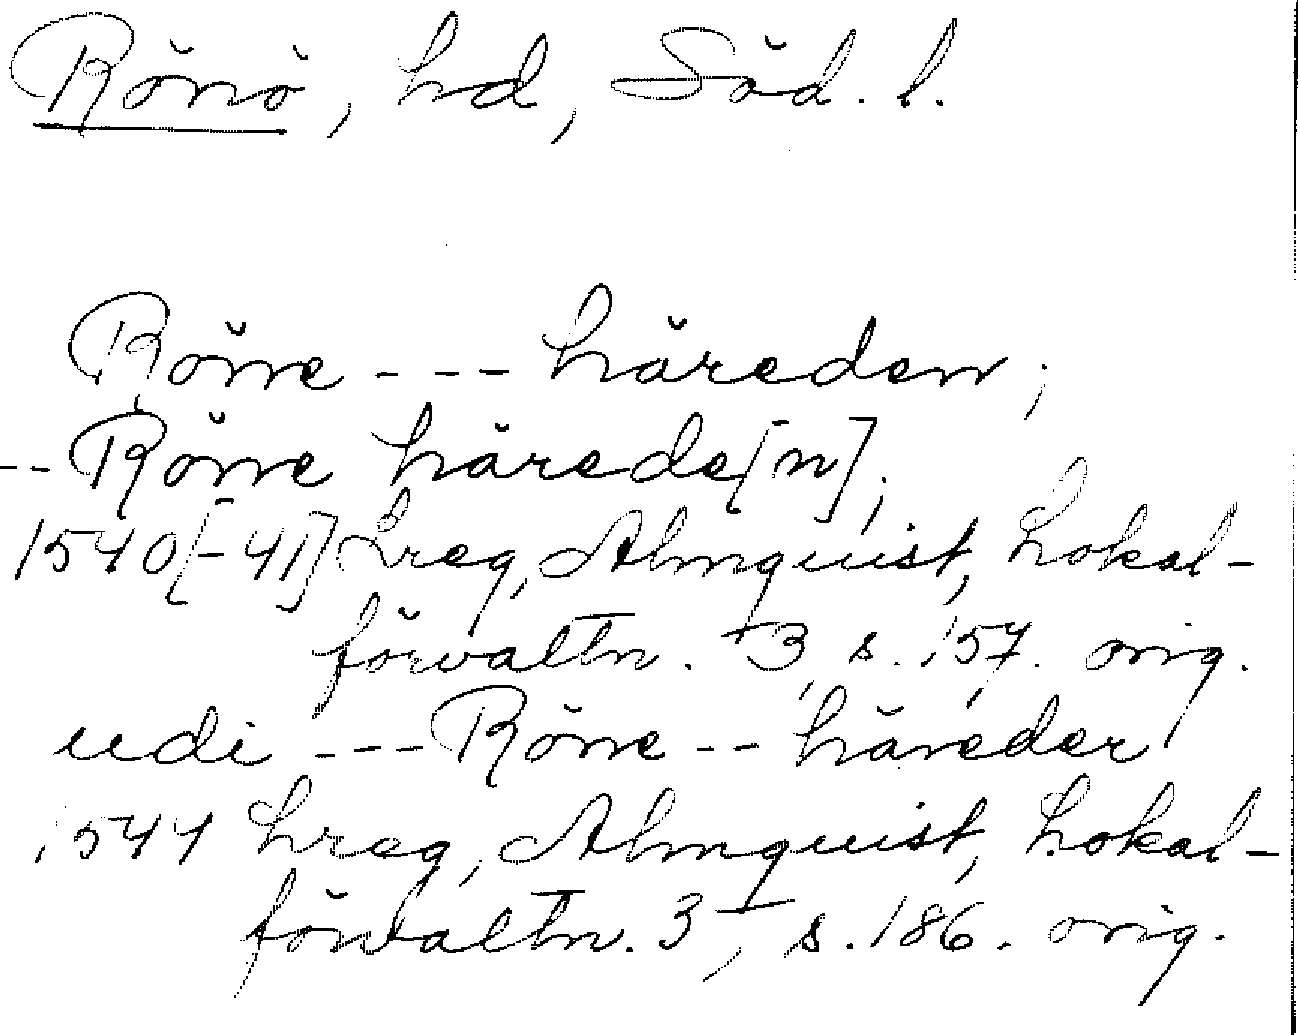 Rönö, hd, Söd. l.
Rönne --- häreden;
-- Rönne härede[n];
1540[-41] Lreg, Almquist, Lokal-
förvaltn. 3, s. 157. orig.
udi --- Rönne -- häreder
1544 Lreg, Almquist, Lokal-
förvaltn. 3, s. 186. orig.